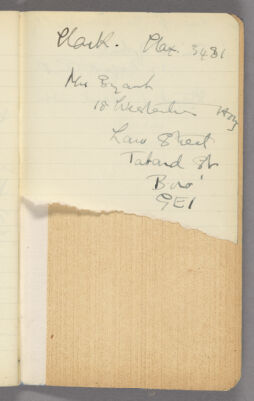 Clark. Flax. 3481
Mrs Bryant
18
Law Street
Tabard St
Boro'
SE1